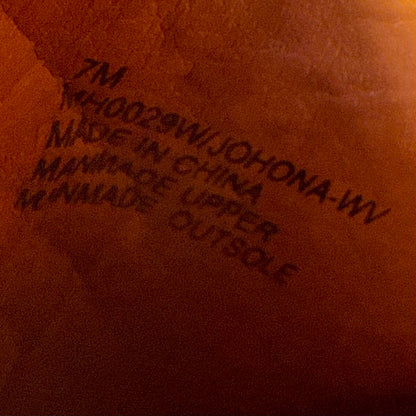 7M
MH0029W/JOHONA-WV
MADE IN CHINA
MANMADE UPPER
MANMADE OUTSOLE